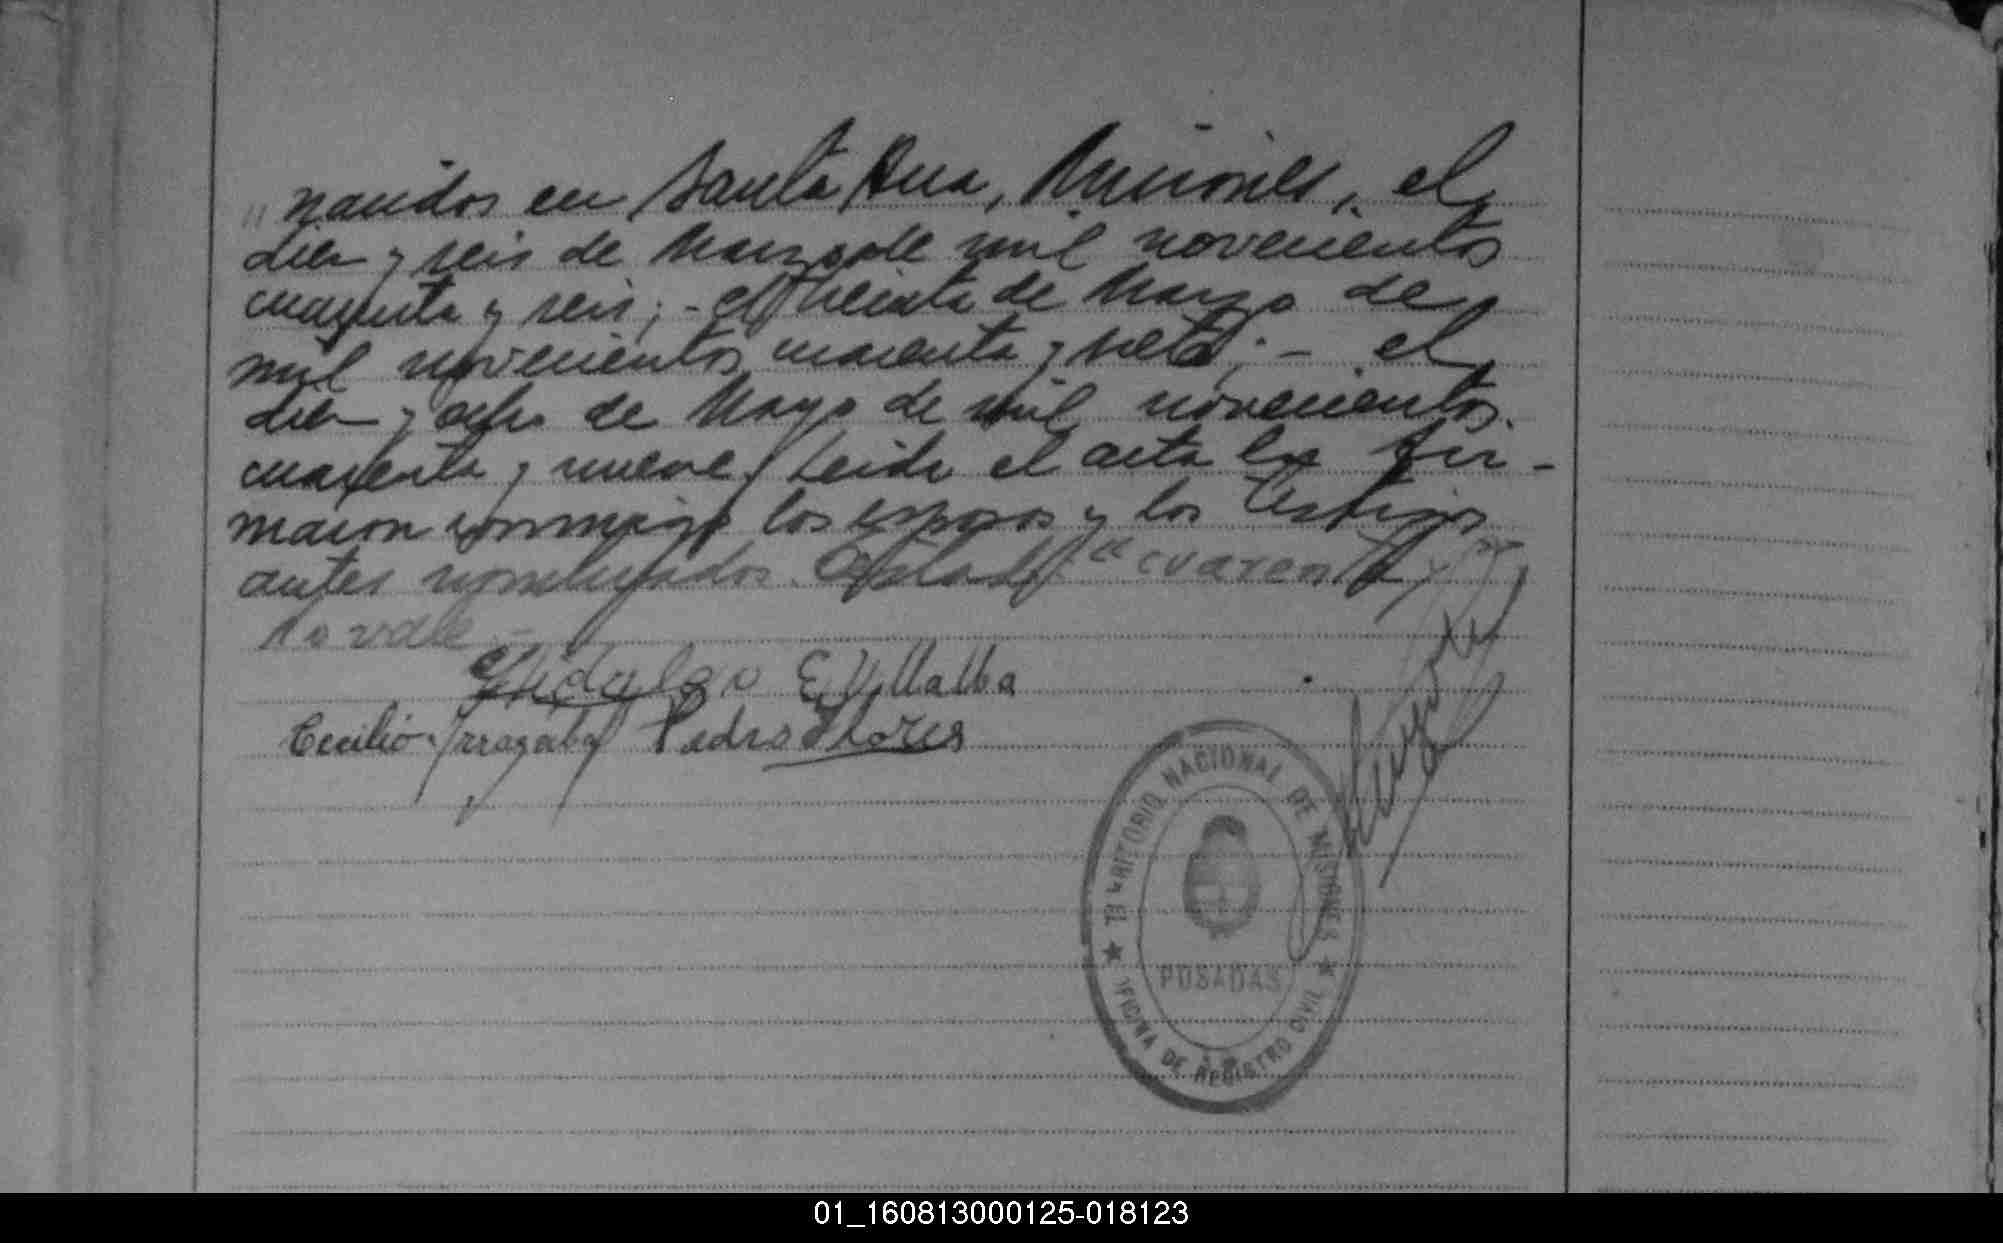 " nacidos en Santa Ana, Misiones, el
diez y seis de Marzo de mil novecientos
cuarenta y seis; - el treinta de Marzo de
mil novecientos cuarenta y siete; - el
diez y ocho de Mayo de mil novecientos
cuarenta y nueve. Leida el acta la fir-
maron conmigo los esposos y los testigos
antes nombrados. "cuarenta y
no vale -
E. Villalba
Cecilio Irrazabal Pedro Flores
TERRITORIO NACIONAL DE MISIONES
POSADAS
OFICINA DE REGISTRO CIVIL
01_160813000125-018123